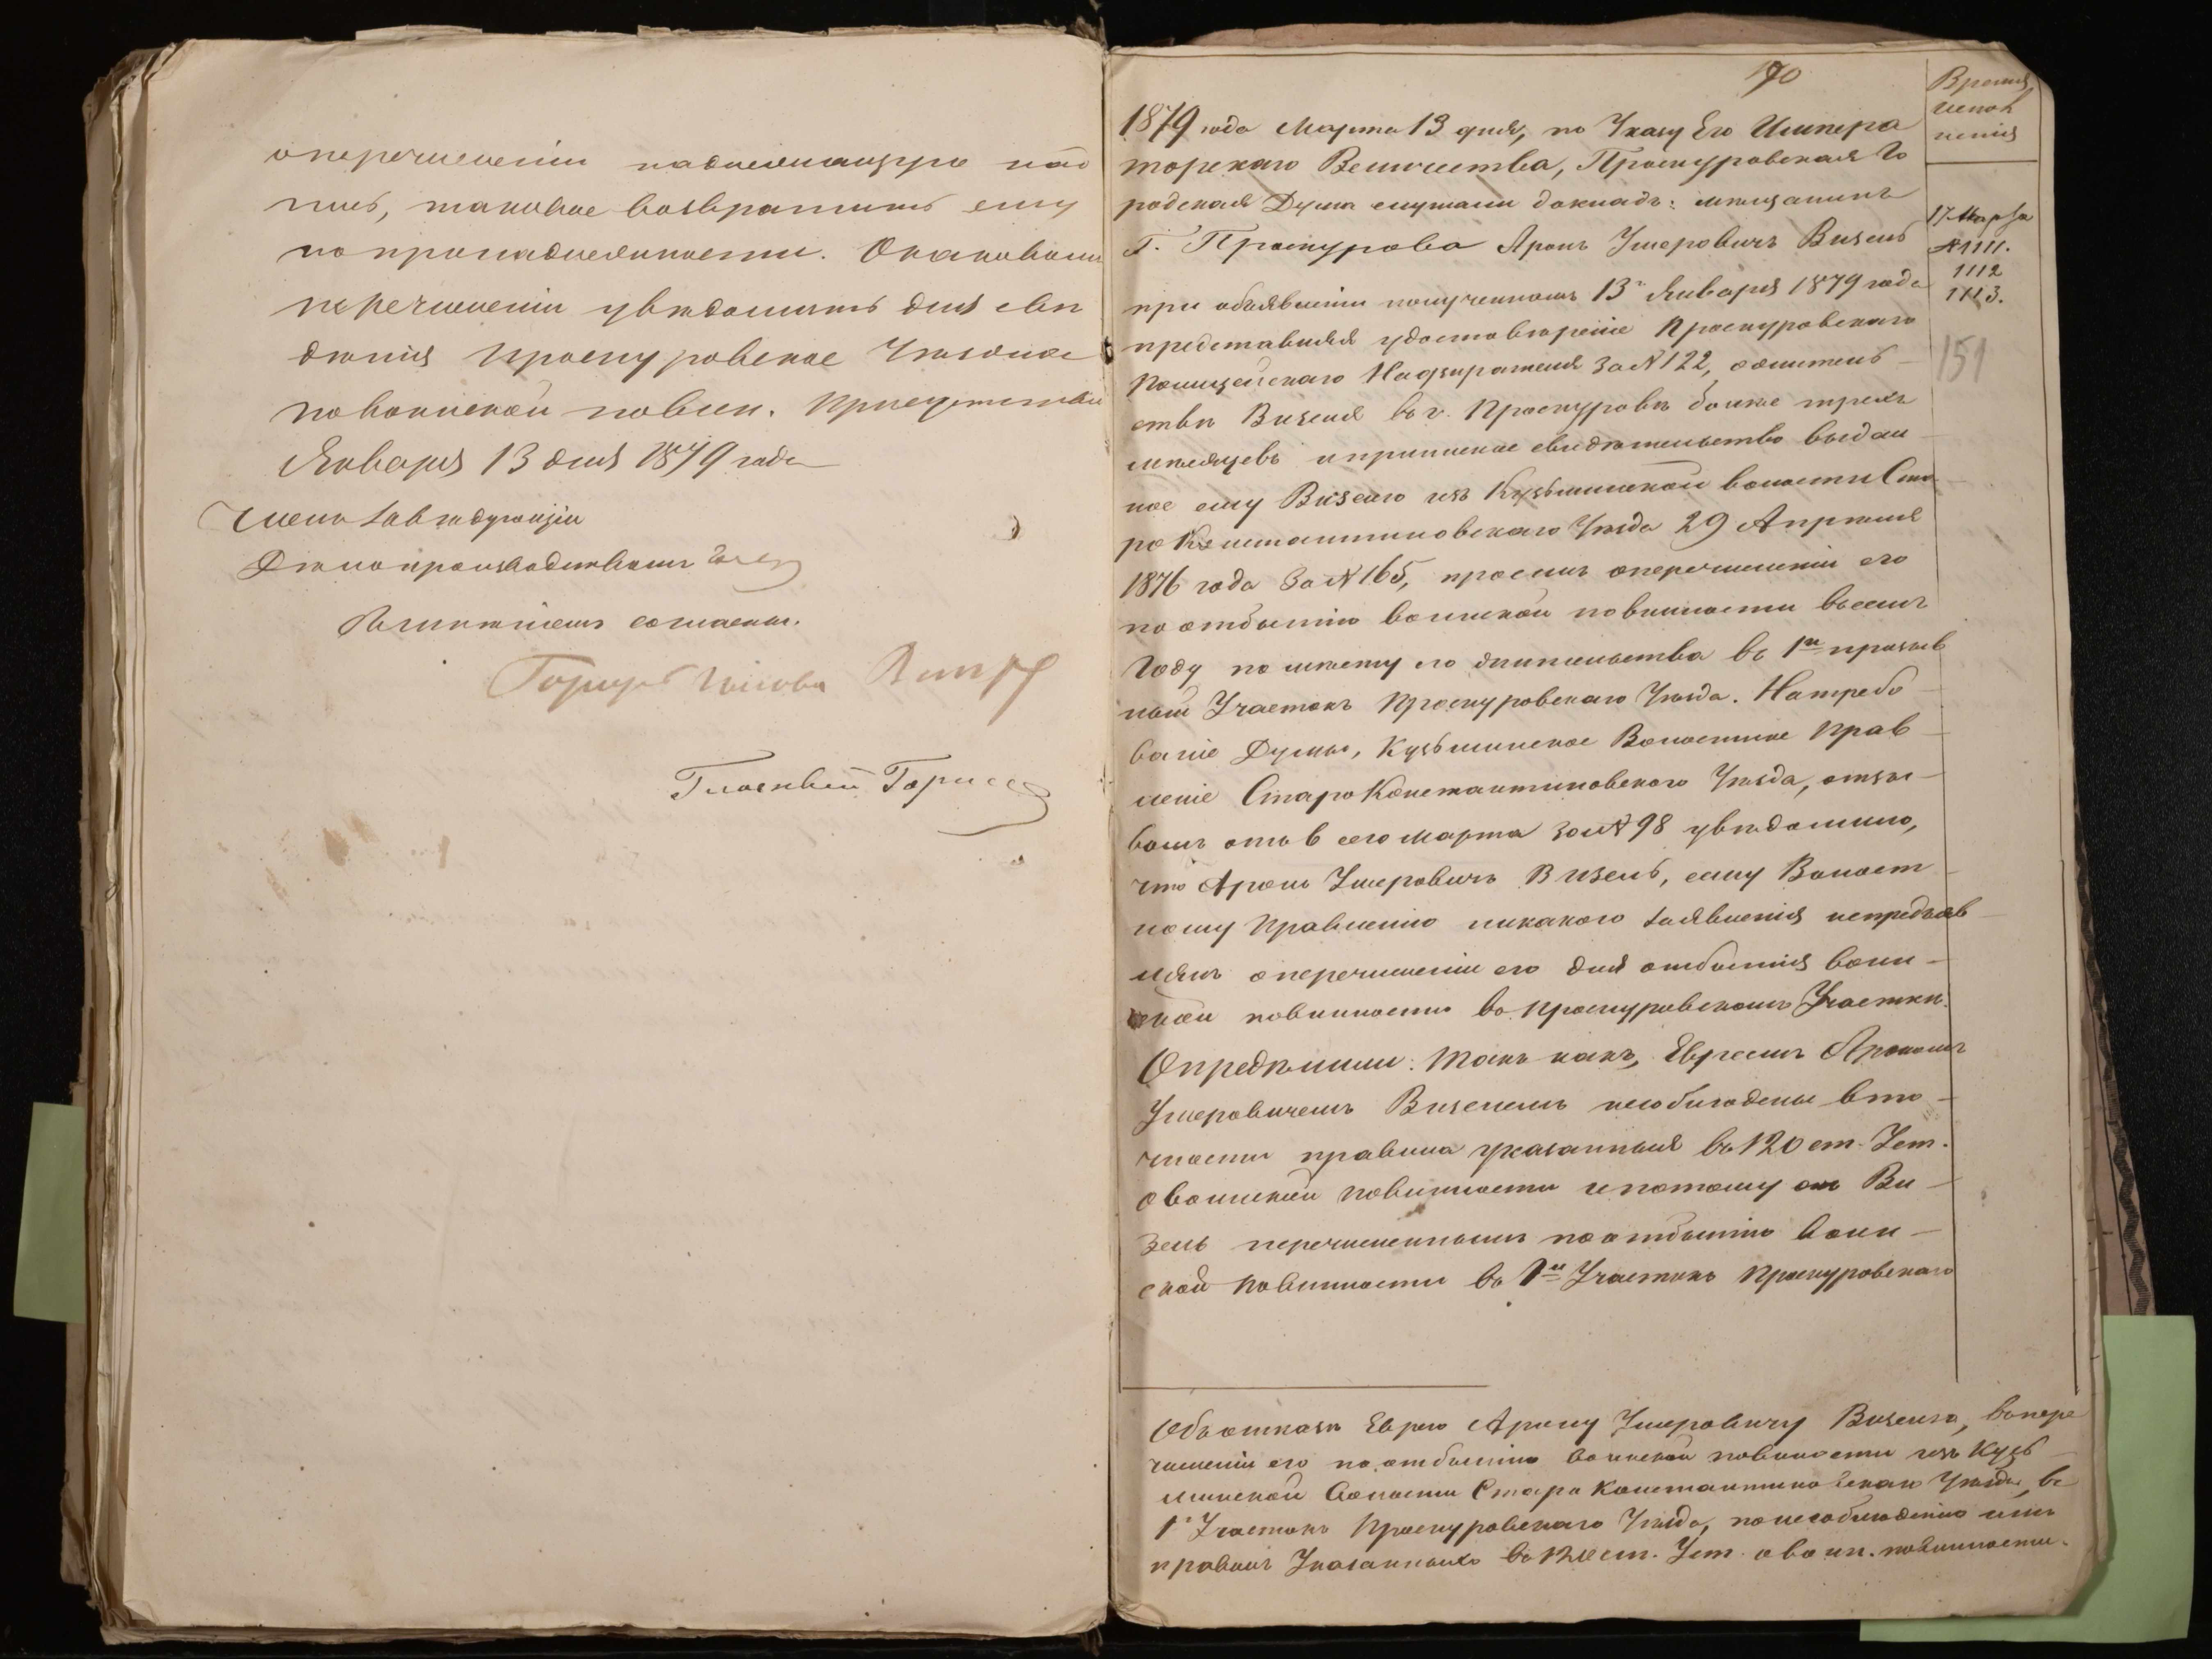 о перечислении надлежащую над
пись, таковое возвратить ему
по принадлежности. О каковом
перечислении уведомить для све
дения Проскуровское Уездное
по воинской повин. Присутствие
Января 13 дня 1879 года
Члена заведующий
Делопроизводством
Заключением согласны.
Гласный
170
Время
испол
нения
17 Марта
№ 1111.
1112
1113.
151
1879 года Марта 13 дня, по Указу Его Импера
торскаго Величества, Проскуровская Го
родская Дума слушали докладъ: мещанинъ
г. Проскурова Аронъ Умеровичъ Визель
при объявлении полученномъ 13 Января 1879 года
представляя удостоверение Проскуровскаго
Полицейскаго Надзирателя за № 122, о жительс
тве Визеля въ г. Проскурове более трехъ
месяцевъ и приписное свидетельство выдан
ное ему Визелю изъ Кузьминской волости Ста
ро Константиновскаго Уезда 29 Апреля
1876 года за № 165, просилъ о перечислении его
по отбытию воинской повинности въ семъ
году по месту его жительства въ 1й призыв
ный Участокъ Проскуровскаго Уезда. На требо
вание Думы, Кузьминское Волостное Прав
ление Старо Константиновскаго Уезда, отзы
вомъ отъ 6 сего Марта за № 98 уведомило,
что Аронъ Умеровичъ Визель, сему Волост
ному Правлению никакого заявления непредъяв
лялъ о перечислении его для отбытия воин
ской повинности въ Проскуровскомъ Участке.
Определили: Такъ какъ, Евреемъ Арономъ
Умеровичемъ Визелемъ несоблюдены въ то
чности правила указанныя въ 120 ст. Уст.
о воинской повинности и потому онъ Ви
зель перечисленнымъ по отбытию воин
ской повинности въ 1й Участокъ Проскуровскаго
Объ отказе Еврею Арону Умеровичу Визелю, въ пере
числении его по отбытию воинской повинности изъ Кузь
минской Волости Старо Константиновскаго Уезда, въ
1й Участокъ Проскуровскаго Уезда, по несоблюдению имъ
правилъ Указанныхъ въ 120 ст. Уст. о воин. повинности.